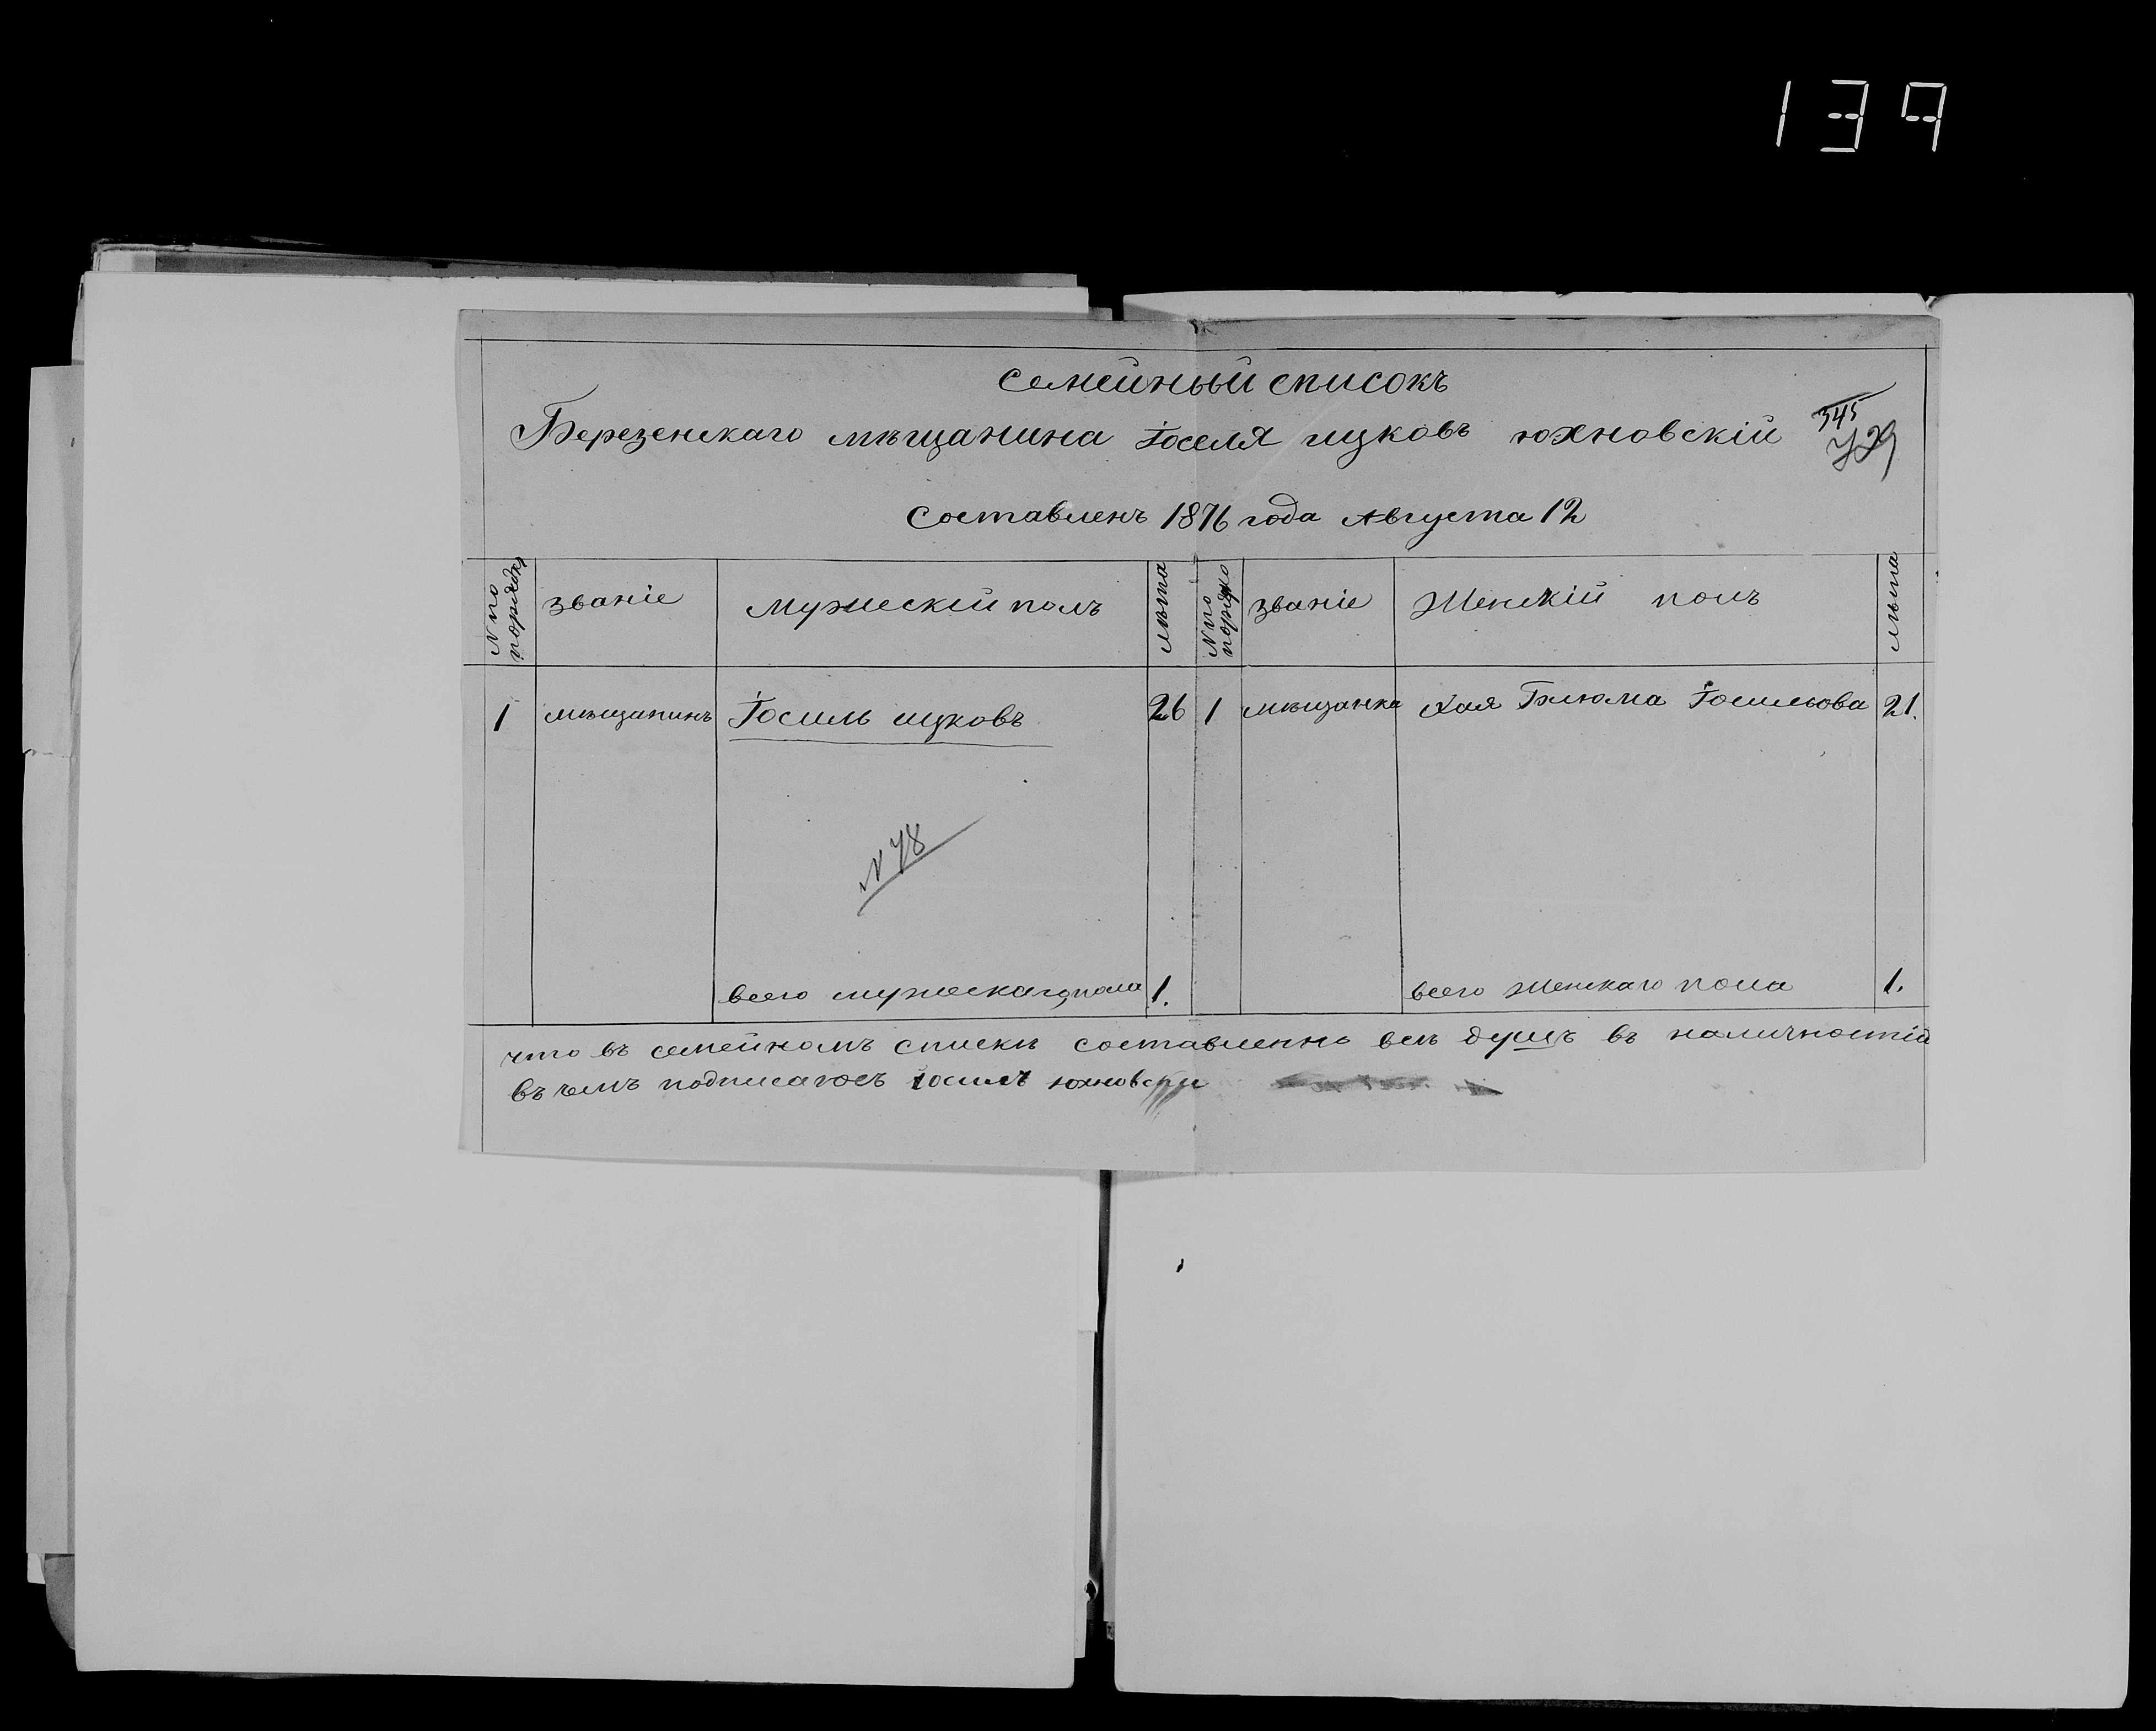 139
Семейный список
Березенскаго мѣщанина Іоселя ицковъ юхновскій
345
729
Составленъ 1876 года Августа 12
N по порядку званіе Мужескій полъ лѣта N по порядко званіе Женскій полъ лѣта
1 мѣщанинъ Іосиль ицковъ 26 1 мѣщанка Хая Блюма Іосильова 21.
N 78
всего мужескаго пола 1. всего женскаго пола 1.
что въ семейномъ списки составленно всѣ душъ въ наличностій
въ чемъ подписаюсъ Іосилъ юхновски